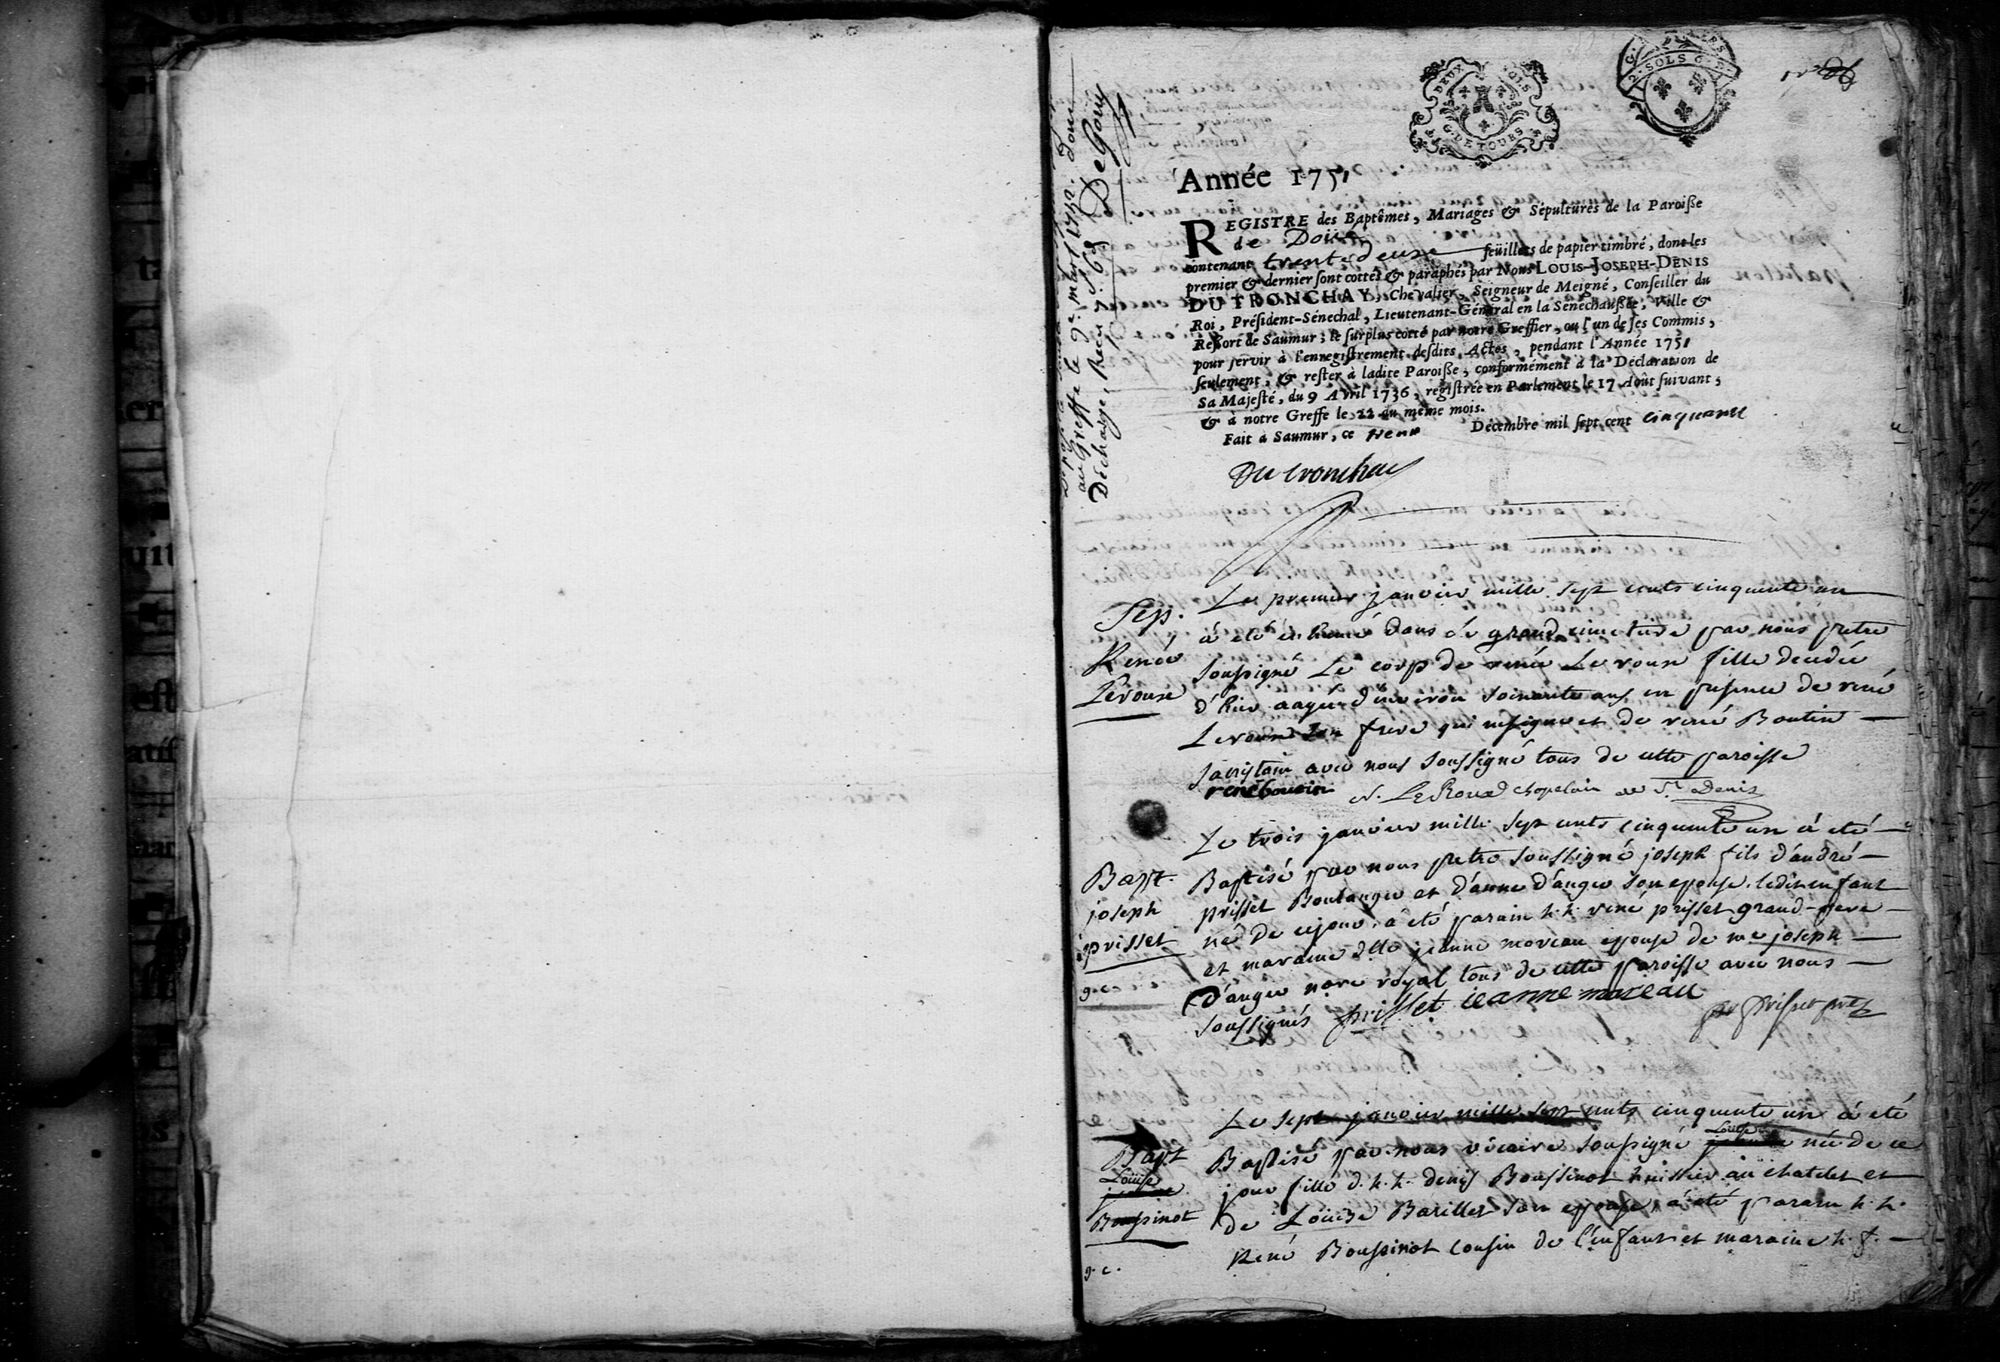 DEUX SOLS
G. DE TOURS
2 SOLS G. D.
Année 1751
REGISTRE des Baptêmes, Mariages & Sépultures de la Paroisse
de Doüé
contenant trente deux feüillets de papier timbré, dont les
premier & dernier sont cottés & paraphés par Nous LOUIS-JOSEPH-DENIS
DU TRONCHAY, Chevalier, Seigneur de Meigné, Conseiller du
Roi, Président-Sénechal, Lieutenant-Général en la Sénéchaussée, Ville &
Ressort de Saumur ; le surplus cotté par notre Greffier, ou l'un de ses Commis,
pour servir à l'enregistrement desdits Actes, pendant l'Année 1751
seulement, & rester à ladite Paroisse, conformément à la Déclaration de
Sa Majesté, du 9 Avril 1736, registrée en Parlement le 17 Août suivant ;
& à notre Greffe le 22 du même mois.
Fait à Saumur, ce trente Décembre mil sept cent cinquante
Du tronchay
au Greffe le 9e mars 1752. dont
Décharge, Receu 7s 6d DeGouy
Sep.
Renée
Leroux
Le premier janvier mille sept cents cinquante un
à été enterré dans le grand cimetiere par nous pretre
soussigné Le corp de renée Le roux fille decedée
d'hier aagée d'environ soixante ans en presence de rené
Leroux son frere qui ne signe et de rené Boutin
sacristain avec nous soussigné tous de cette paroisse
rené boutin N. LeRoux chapelain de St. Denis
Bapt.
joseph
prisset
g. c.
Le trois janvier mille sept cents cinquante un à eté
Baptisé par nous pretre soussigné joseph fils d'andré
prisset Boulanger et d'anne d'anger son epouse. ledit enfant
né de ce jour, à eté parain h. h. rené prisset grand-pere
et maraine dlle jeanne moreau epouse de me joseph
d'anger nore royal tous de cette paroisse avec nous
soussignés prisset jeanne moreau
Bapt
Loüise
Boussinot
g. c.
Le sept janvier mille sept cents cinquante un à eté
Baptisé par nous vicaire soussigné Loüise née de ce
jour fille d. h. h. denis Boussinot huissier au chatelet et
de Loüise Barillet son epouse, à eté parain h. h.
René Boussinot cousin de l'enfant et maraine h. f.